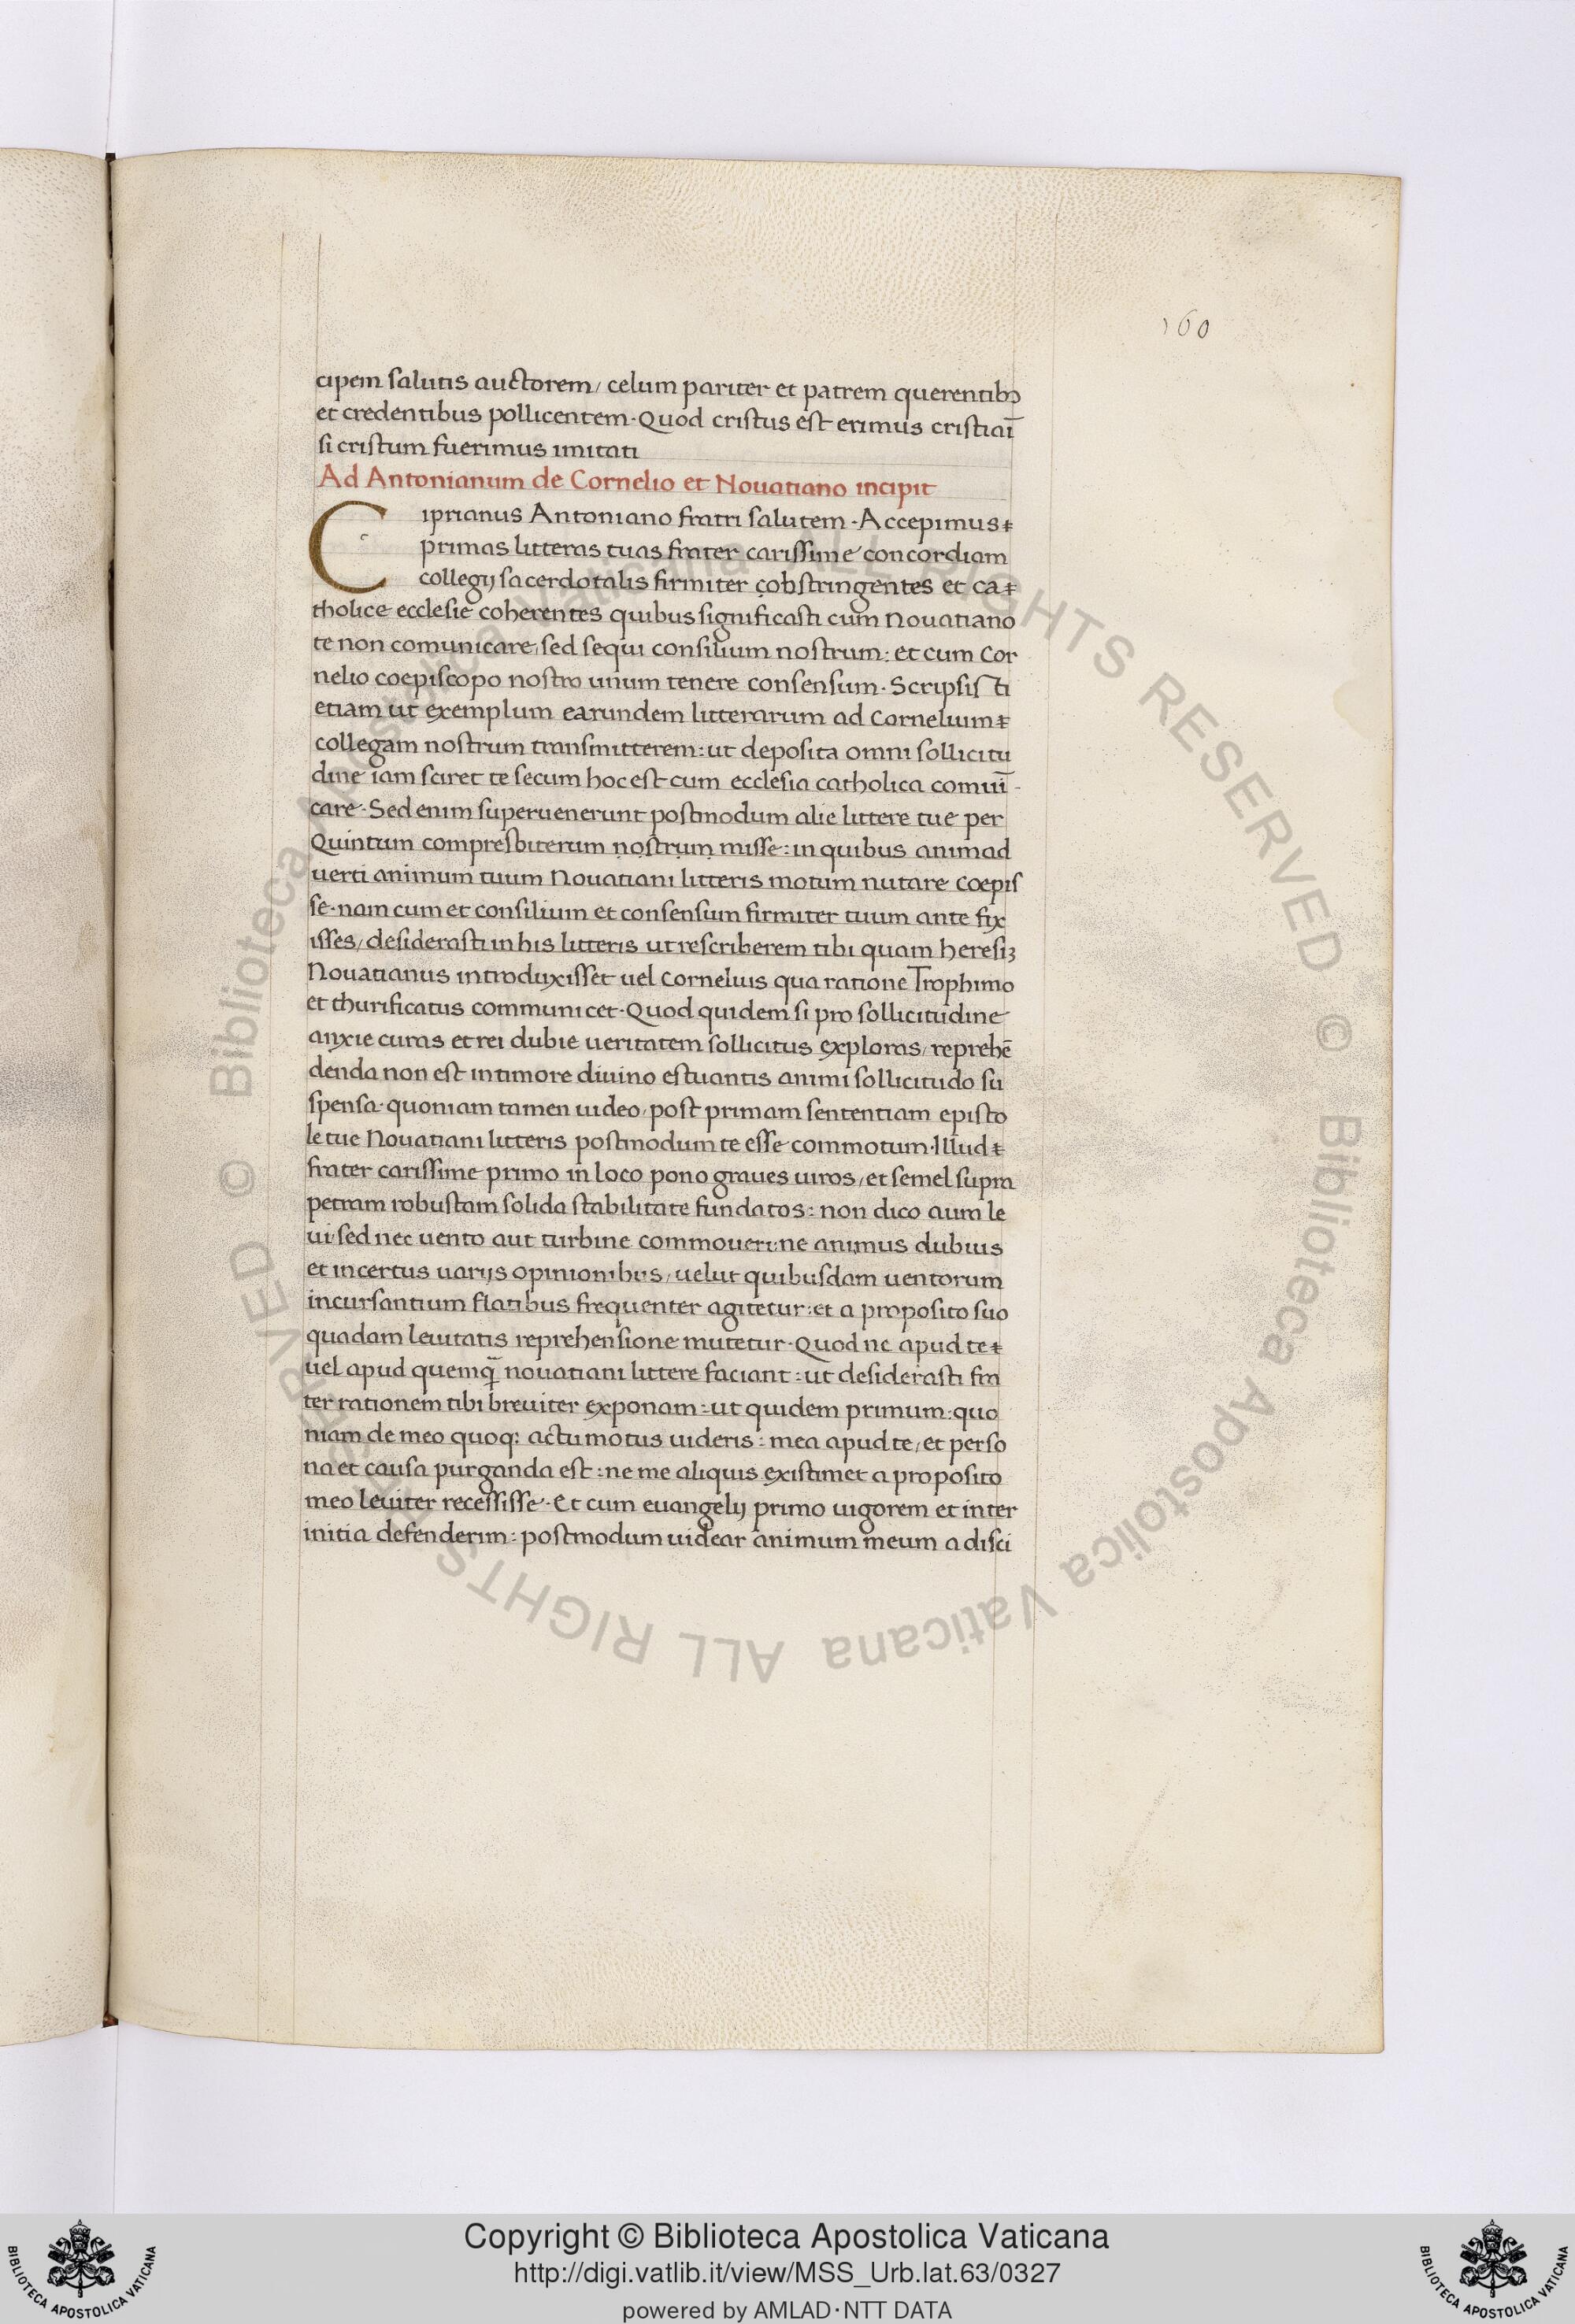 160
cipem salutis auctorem/ celum pariter et patrem querentibꝫ
et credentibus pollicentem · Quod cristus est erimus cristiaī
si cristum fuerimus imitati
Ad Antonianum de Cornelio et Nouatiano incipit
Ciprianus Antoniano fratri salutem · Accepimus
primas litteras tuas frater carissime concordiam
collegij sacerdotalis firmiter cobstringentes et ca
tholice ecclesie coherentes quibus significasti cum Nouatiano
te non comunicare/ sed sequi consilium nostrum: et cum Cor
nelio coepiscopo nostro unum tenere consensum · Scripsisti
etiam ut exemplum earundem litterarum ad Cornelium
collegam nostrum transmitterem: ut deposita omni sollicitu
dine iam sciret te secum hoc est cum ecclesia catholica comuī
care · Sed enim superuenerunt postmodum alie littere tue per
Quintum compresbiterum nostrum misse: in quibus animad
uerti animum tuum Nouatiani litteris motum nutare coepis
se · nam cum et consilium et consensum firmiter tuum ante fix
isses/ desiderasti in his litteris ut rescriberem tibi quam heresiꝫ
Nouatianus introduxisset uel Cornelius qua ratione Trophimo
et thurificatus communicet · Quod quidem si pro sollicitudine
anxie curas et rei dubie ueritatem sollicitus exploras/ reprehē
denda non est in timore diuino estuantis animi sollicitudo su
spensa · quoniam tamen uideo/ post primam sententiam episto
le tue Nouatiani litteris postmodum te esse commotum · Illud
frater carissime primo in loco pono graues uiros/ et semel supra
petram robustam solida stabilitate fundatos: non dico aura le
ui/ sed nec uento aut turbine commoueri: ne animus dubius
et incertus uarijs opinionibus/ uelut quibusdam uentorum
incursantium flatibus frequenter agitetur: et a proposito suo
quadam leuitatis reprehensione mutetur · Quod ne apud te
uel apud quemq̄ nouatiani littere faciant: ut desiderasti fra
ter rationem tibi breuiter exponam: ut quidem primum: quo
niam de meo quoq: actu motus uideris: mea apud te/ et perso
na et causa purganda est: ne me aliquis existimet a proposito
meo leuiter recessisse · Et cum euangelij primo uigorem et inter
initia defenderim: postmodum uidear animum meum a disci
© Biblioteca Apostolica Vaticana ALL RIGHTS RESERVED © Biblioteca Apostolica Vaticana ALL RIGHTS RESERVED
Copyright © Biblioteca Apostolica Vaticana
http://digi.vatlib.it/view/MSS_Urb.lat.63/0327
powered by AMLAD·NTT DATA
BIBLIOTECA APOSTOLICA VATICANA
BIBLIOTECA APOSTOLICA VATICANA